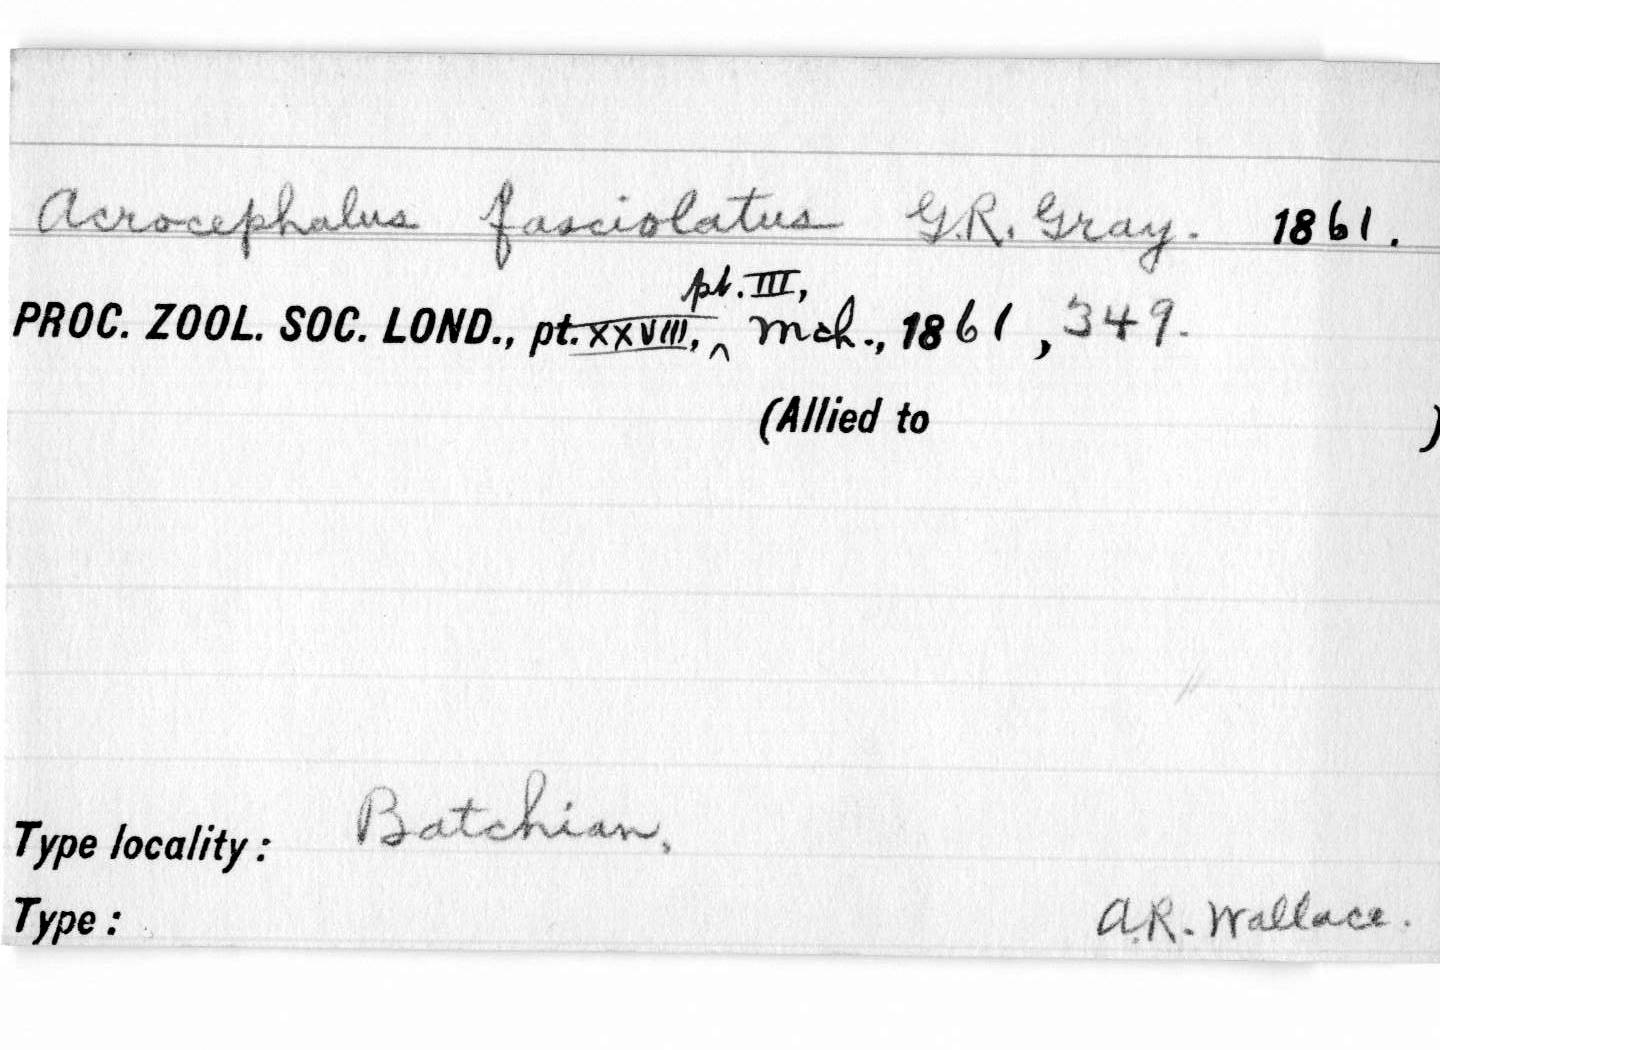 Acrocephalus fasciolatus G.R. Gray. 1861.
pt. III,
PROC. ZOOL. SOC. LOND., pt. XXVIII, ^ Mch., 1861, 349.
(Allied to )
Type locality: Batchian,
Type: A.R. Wallace.